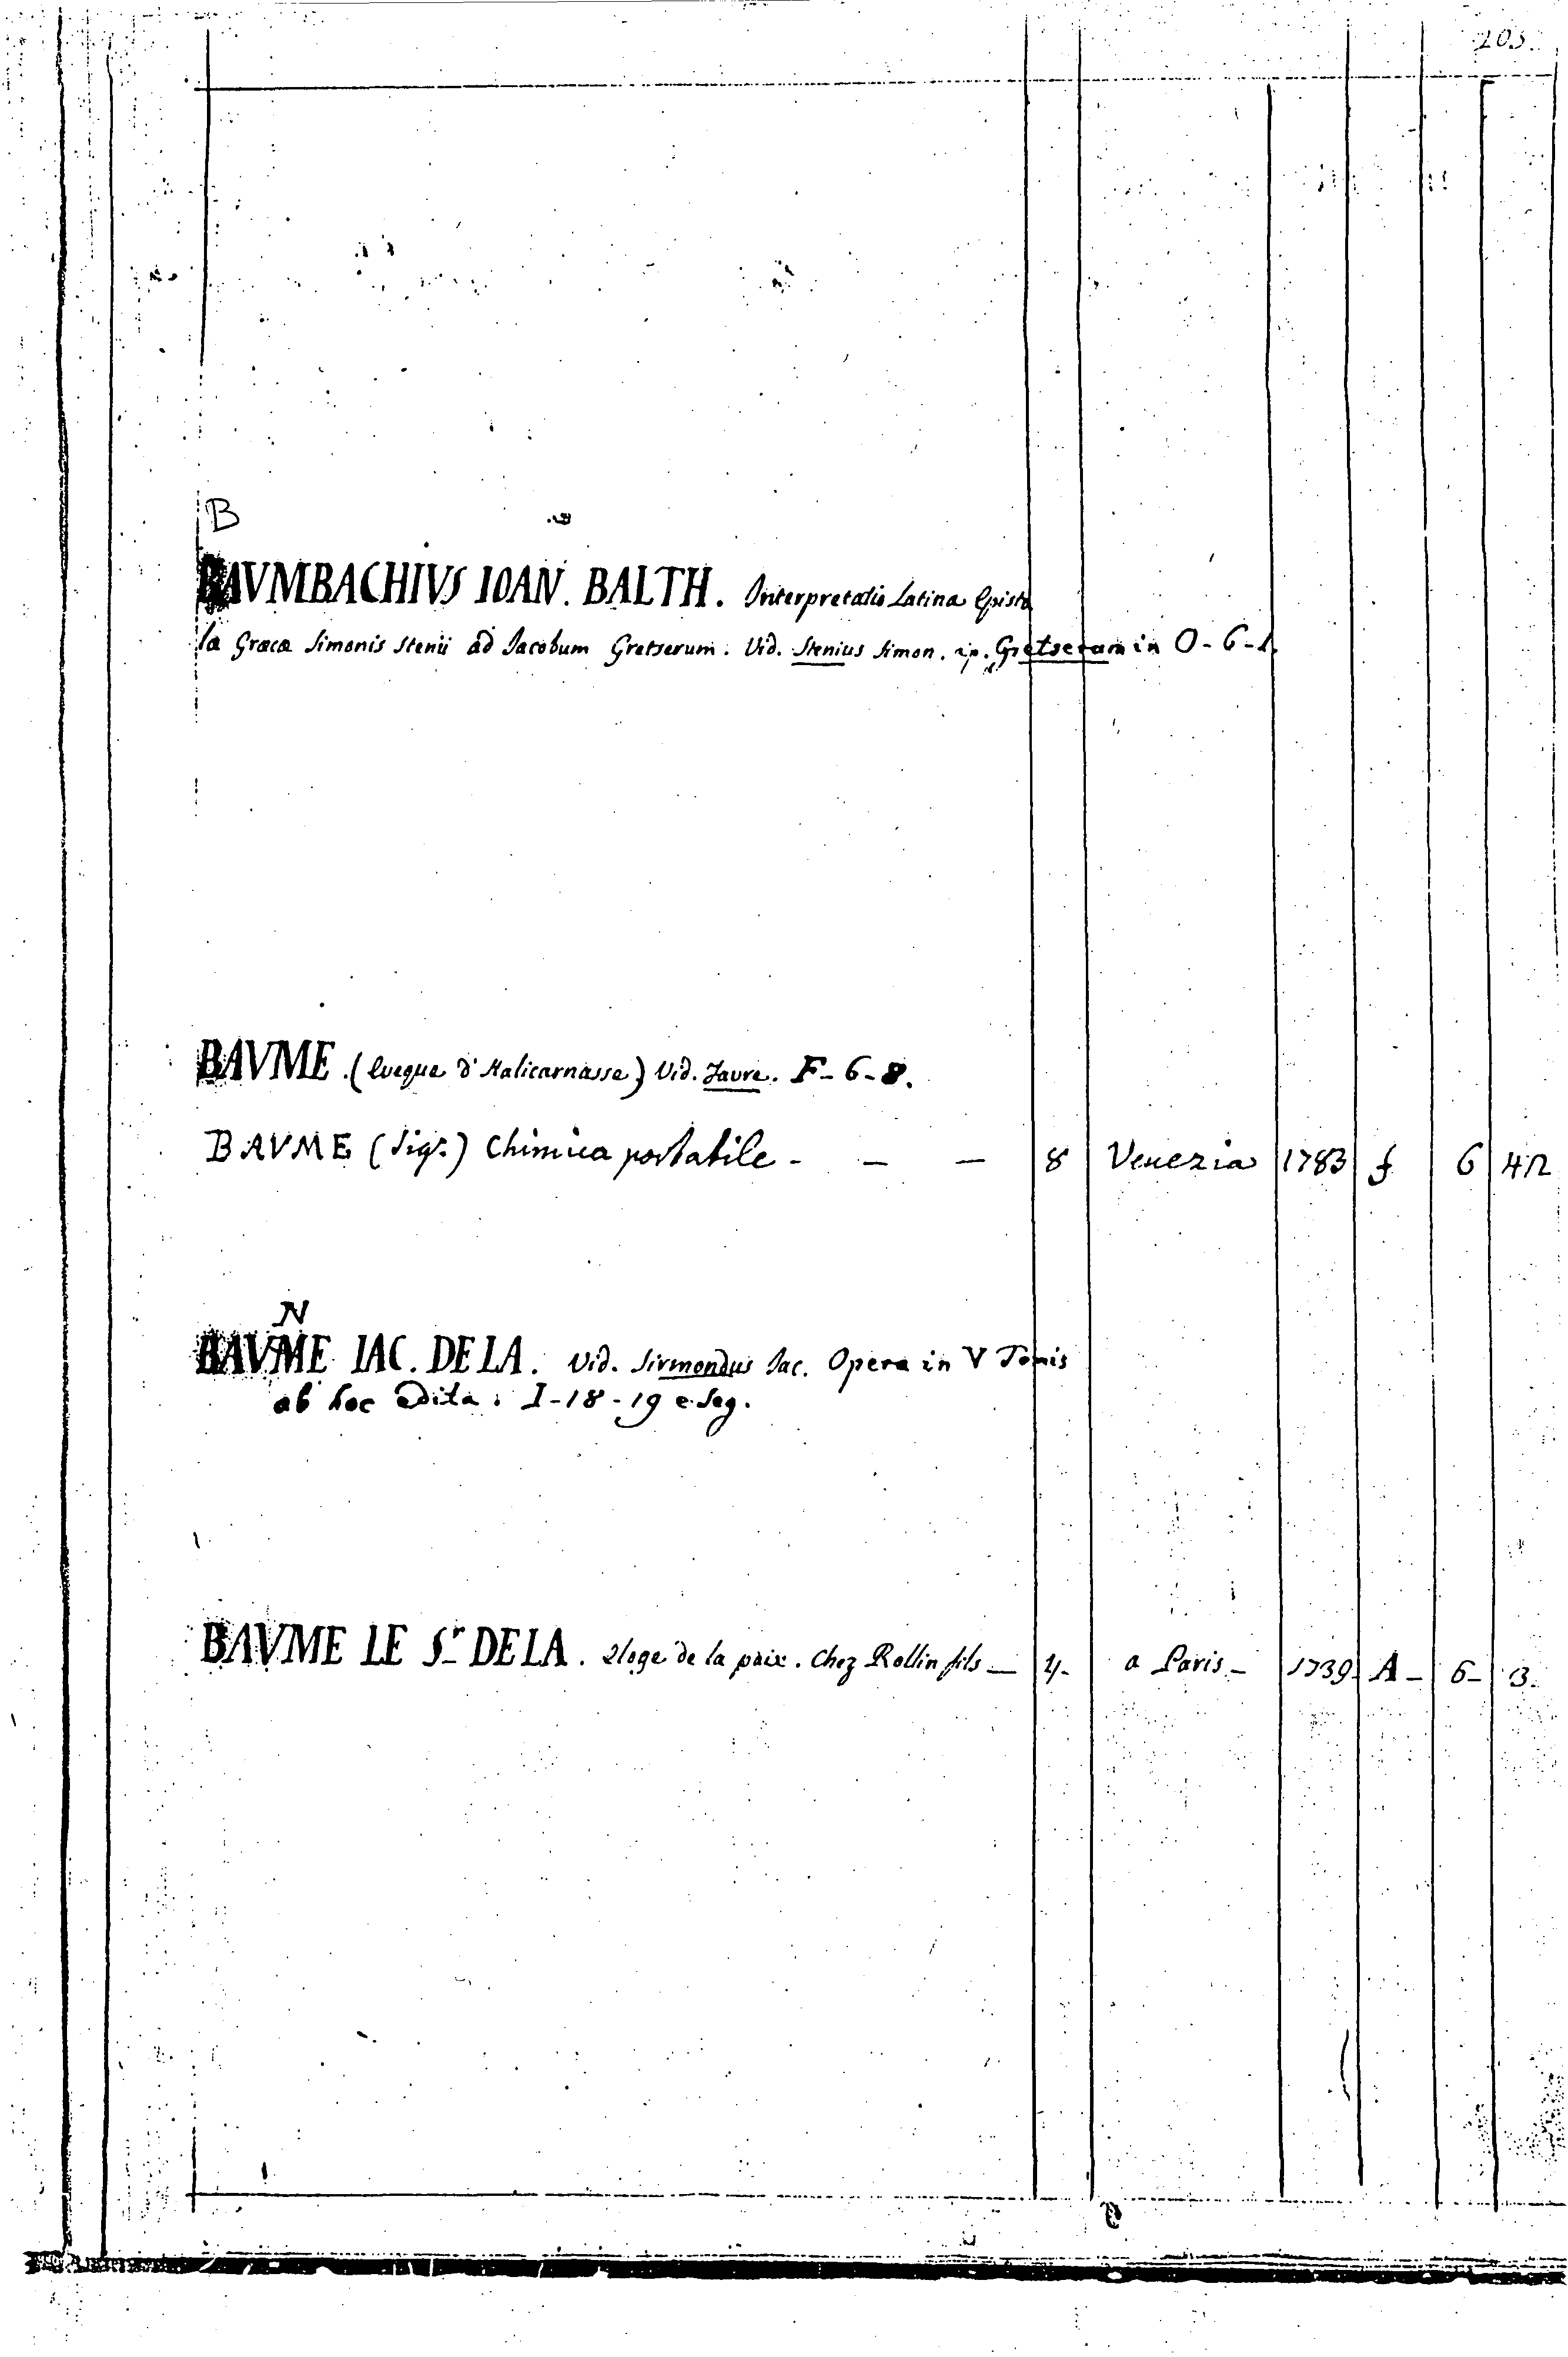 203.
B
BAVMBACHIVS IOAN. BALTH. Interpretatio Latina Episto
la Græca Simonis Stenii ad Jacobum Gretserum. Vid. Stenius Simon. ep. Gretserum in O-6-1.
BAVME. (Eveque d'Halicarnasse) Vid. Favre. F-6-8.
BAVME (Sigr.) Chimica portatile - - - 8 Venezia 1783 f 6 42
N
BAVME IAC. DE LA. Vid. Sirmondus Jac. Opera in V Tomis
ab hoc edita. I-18-19 e seg.
BAVME LE Sr DE LA. Eloge de la paix. Chez Rollin fils - 4- a Paris - 1739 A - 6- 3.